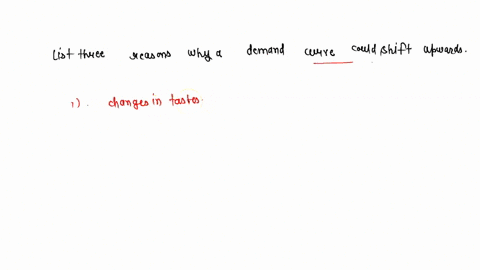 List three reasons why a demand curve could shift upwards.
1). changes in tastes.